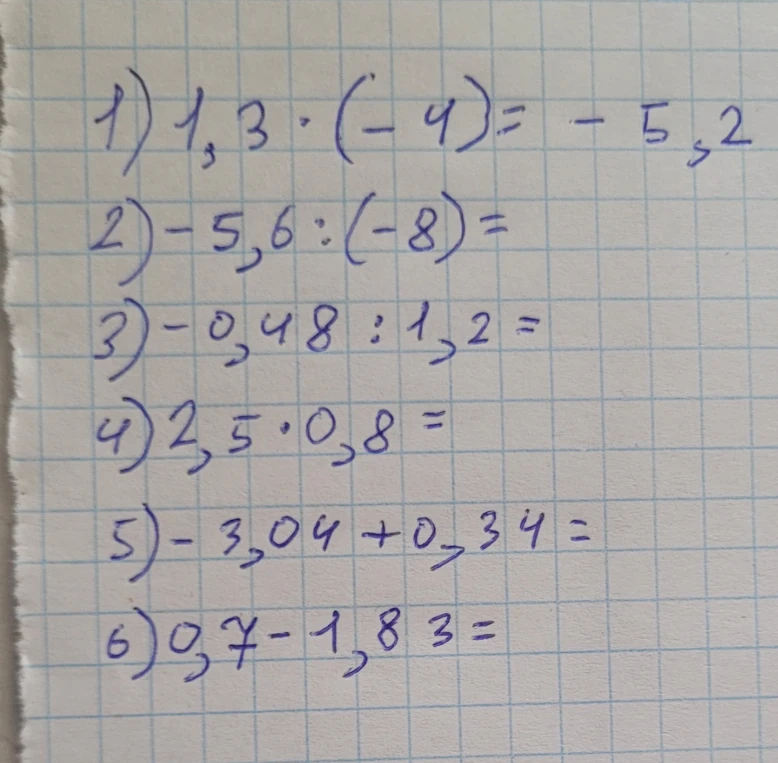 1) 1,3 · (- 4) = - 5,2
2) - 5,6 : (- 8) =
3) - 0,48 : 1,2 =
4) 2,5 · 0,8 =
5) - 3,04 + 0,34 =
6) 0,7 - 1,83 =